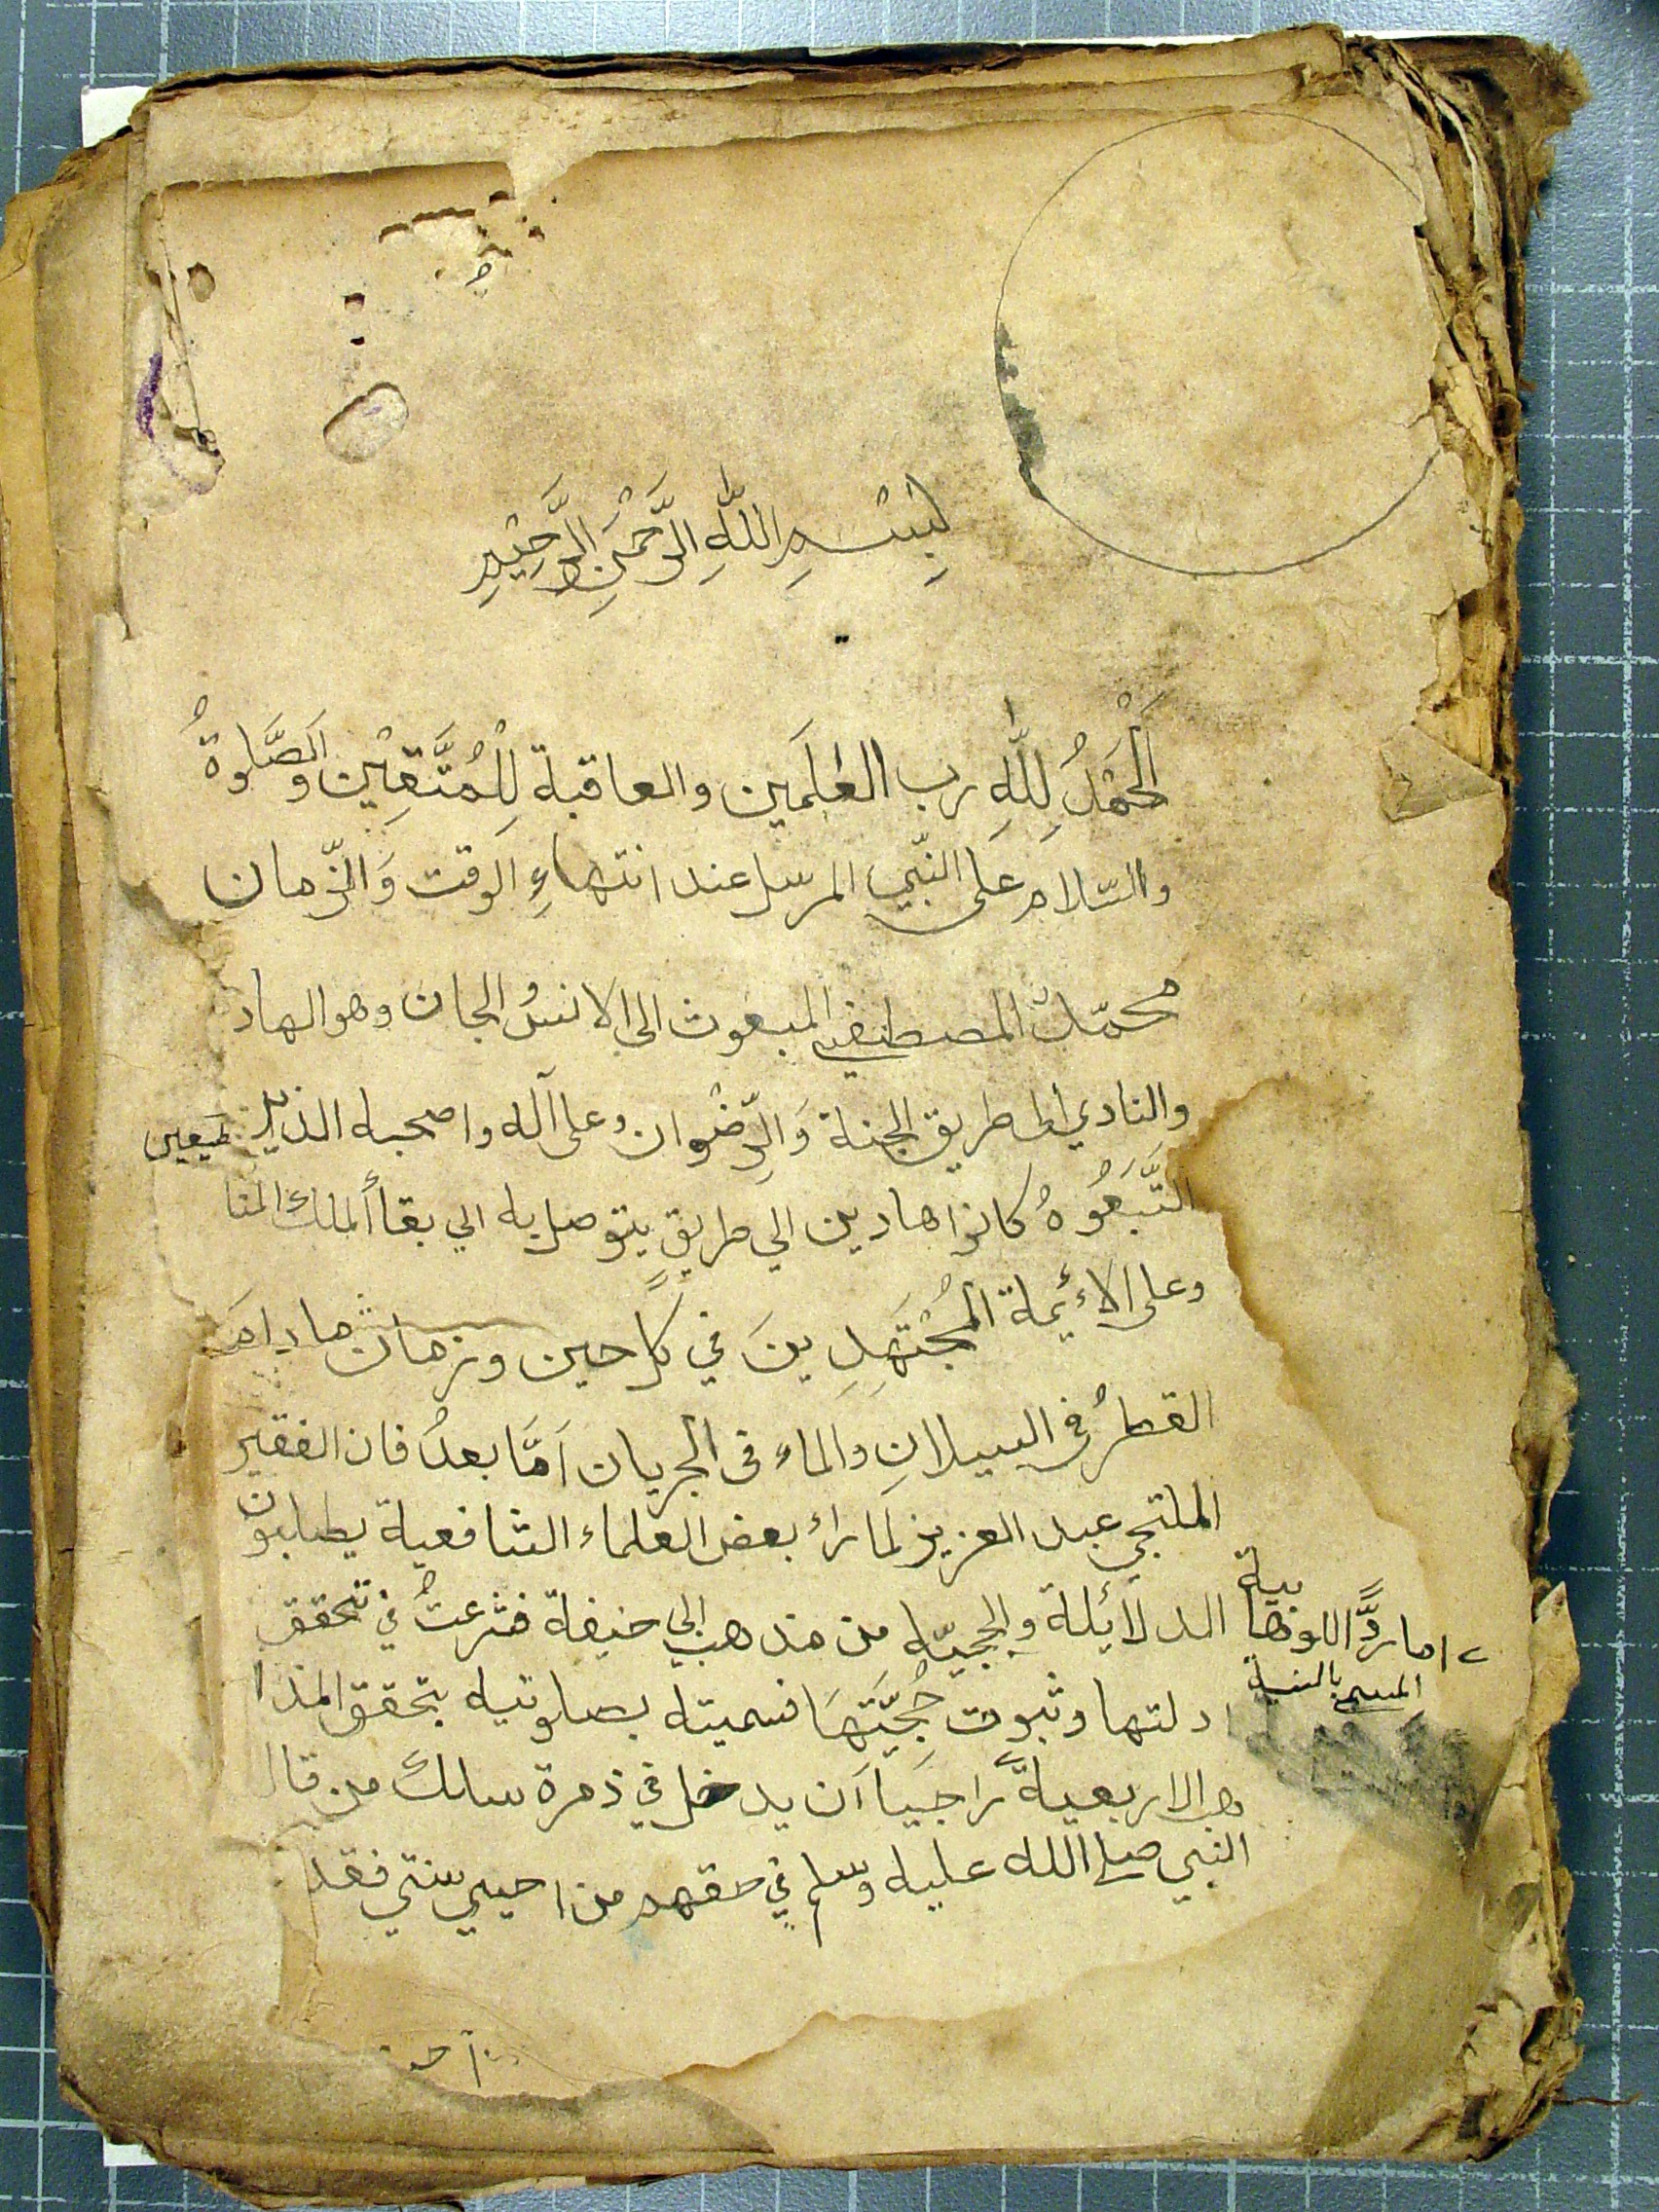 لِبِسْـمِ اللّٰهِ الرَّحْمٰنِ الرَّحِيْمِ
اَلْحَمْدُ لِلّٰهِ رب العٰلَمَين والعاقبة لِلْمُتَّقِيْن وَالصَّلوةُ
والسّلام عَلى النّبي المرسل عند انتهاءِ الَوقت وَالزّمان
محمّدٌ المصطفى المبعوث الى الانس والجان وهو الهاد
والنادي الى طريق الجنة وَالرِّضْوان وعلى آله واصحبه الذين
التَّبَعُوهُ كانوا هادين الي طريق يتوصل به الي بقاأ الملك المنا
وعلى الاءيمة المُجْتَهِدِينَ في كلِّ حين وزمان ما دامَ
القطرُ في السيلانِ والماء في الجريان اَمَّا بعدُ فان الفقير
الملتجي عبد العزيز لما راء بعض العلماء الشافعية يطلبون
الدلائلة والحجيّه من مذهب ابي حنيفة فشرعتُ في تحقق
ادلتها وثبوت حُجِّيَّتِهَا فسميته بصلوتيه بتحقق المذا
هب الاربعيةً راجيَا اَن يدخل في ذمرة سالك من قال
النبي صلى الله عليه وسلم في حقهم من احيي سنتي فقد